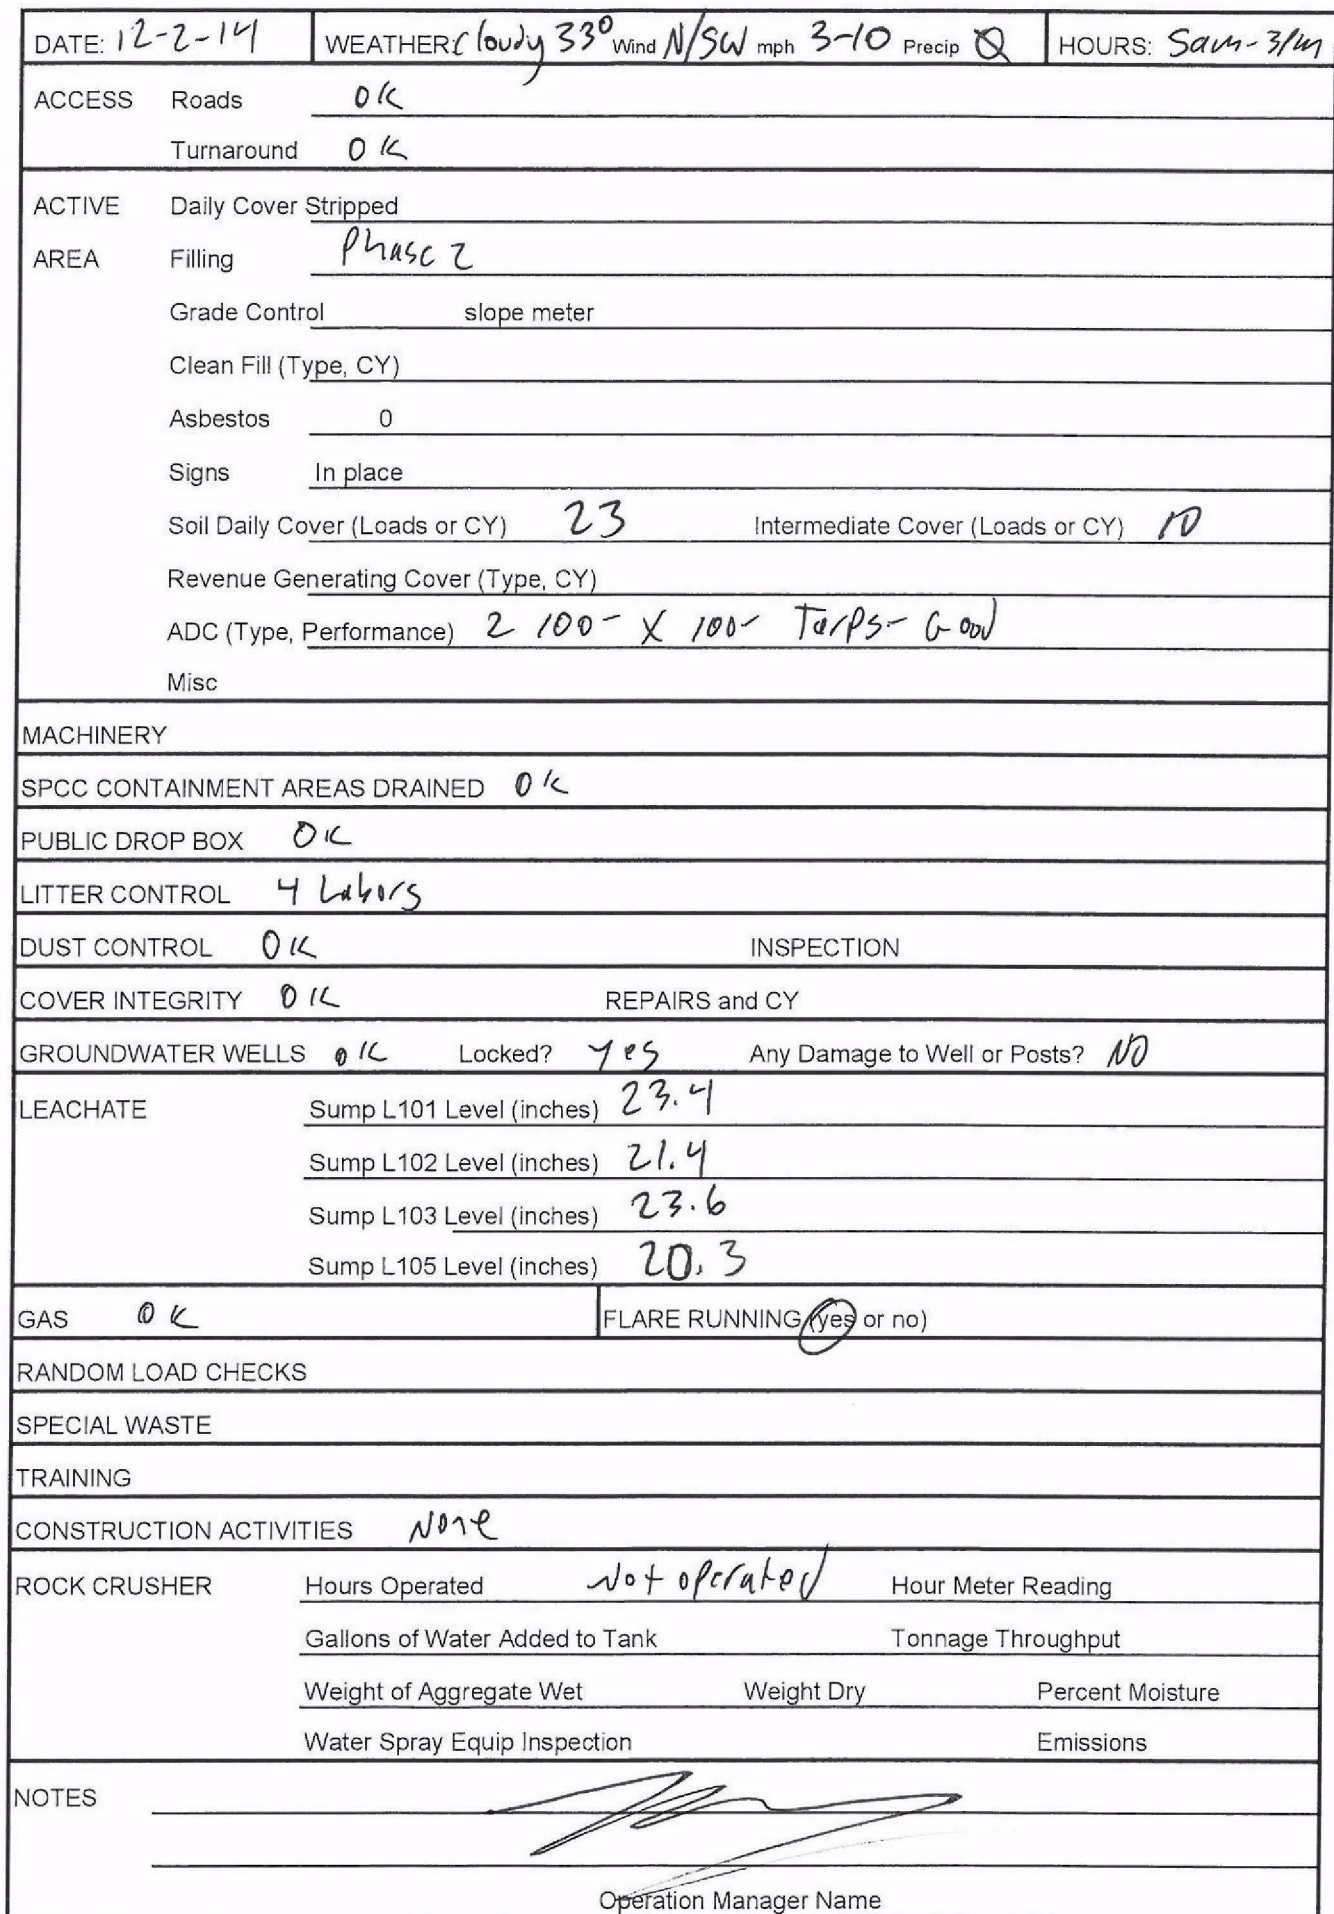 DATE: 12-2-14 WEATHER: Cloudy 33° Wind N/SW mph 3-10 Precip Ø HOURS: 5am-3pm
ACCESS Roads OK
Turnaround OK
ACTIVE Daily Cover Stripped
AREA Filling Phase 2
Grade Control slope meter
Clean Fill (Type, CY)
Asbestos 0
Signs In place
Soil Daily Cover (Loads or CY) 23 Intermediate Cover (Loads or CY)
Revenue Generating Cover (Type, CY)
ADC (Type, Performance) 2 100- X 100- Tarps- Good
Misc
MACHINERY
SPCC CONTAINMENT AREAS DRAINED OK
PUBLIC DROP BOX OK
LITTER CONTROL 4 Labors
DUST CONTROL OK INSPECTION
COVER INTEGRITY OK REPAIRS and CY
GROUNDWATER WELLS OK Locked? Yes Any Damage to Well or Posts? NO
LEACHATE Sump L101 Level (inches) 23.4
Sump L102 Level (inches) 21.4
Sump L103 Level (inches) 23.6
Sump L105 Level (inches) 20.3
GAS OK FLARE RUNNING (yes or no)
RANDOM LOAD CHECKS
SPECIAL WASTE
TRAINING
CONSTRUCTION ACTIVITIES None
ROCK CRUSHER Hours Operated Not operated Hour Meter Reading
Gallons of Water Added to Tank Tonnage Throughput
Weight of Aggregate Wet Weight Dry Percent Moisture
Water Spray Equip Inspection Emissions
NOTES
Operation Manager Name